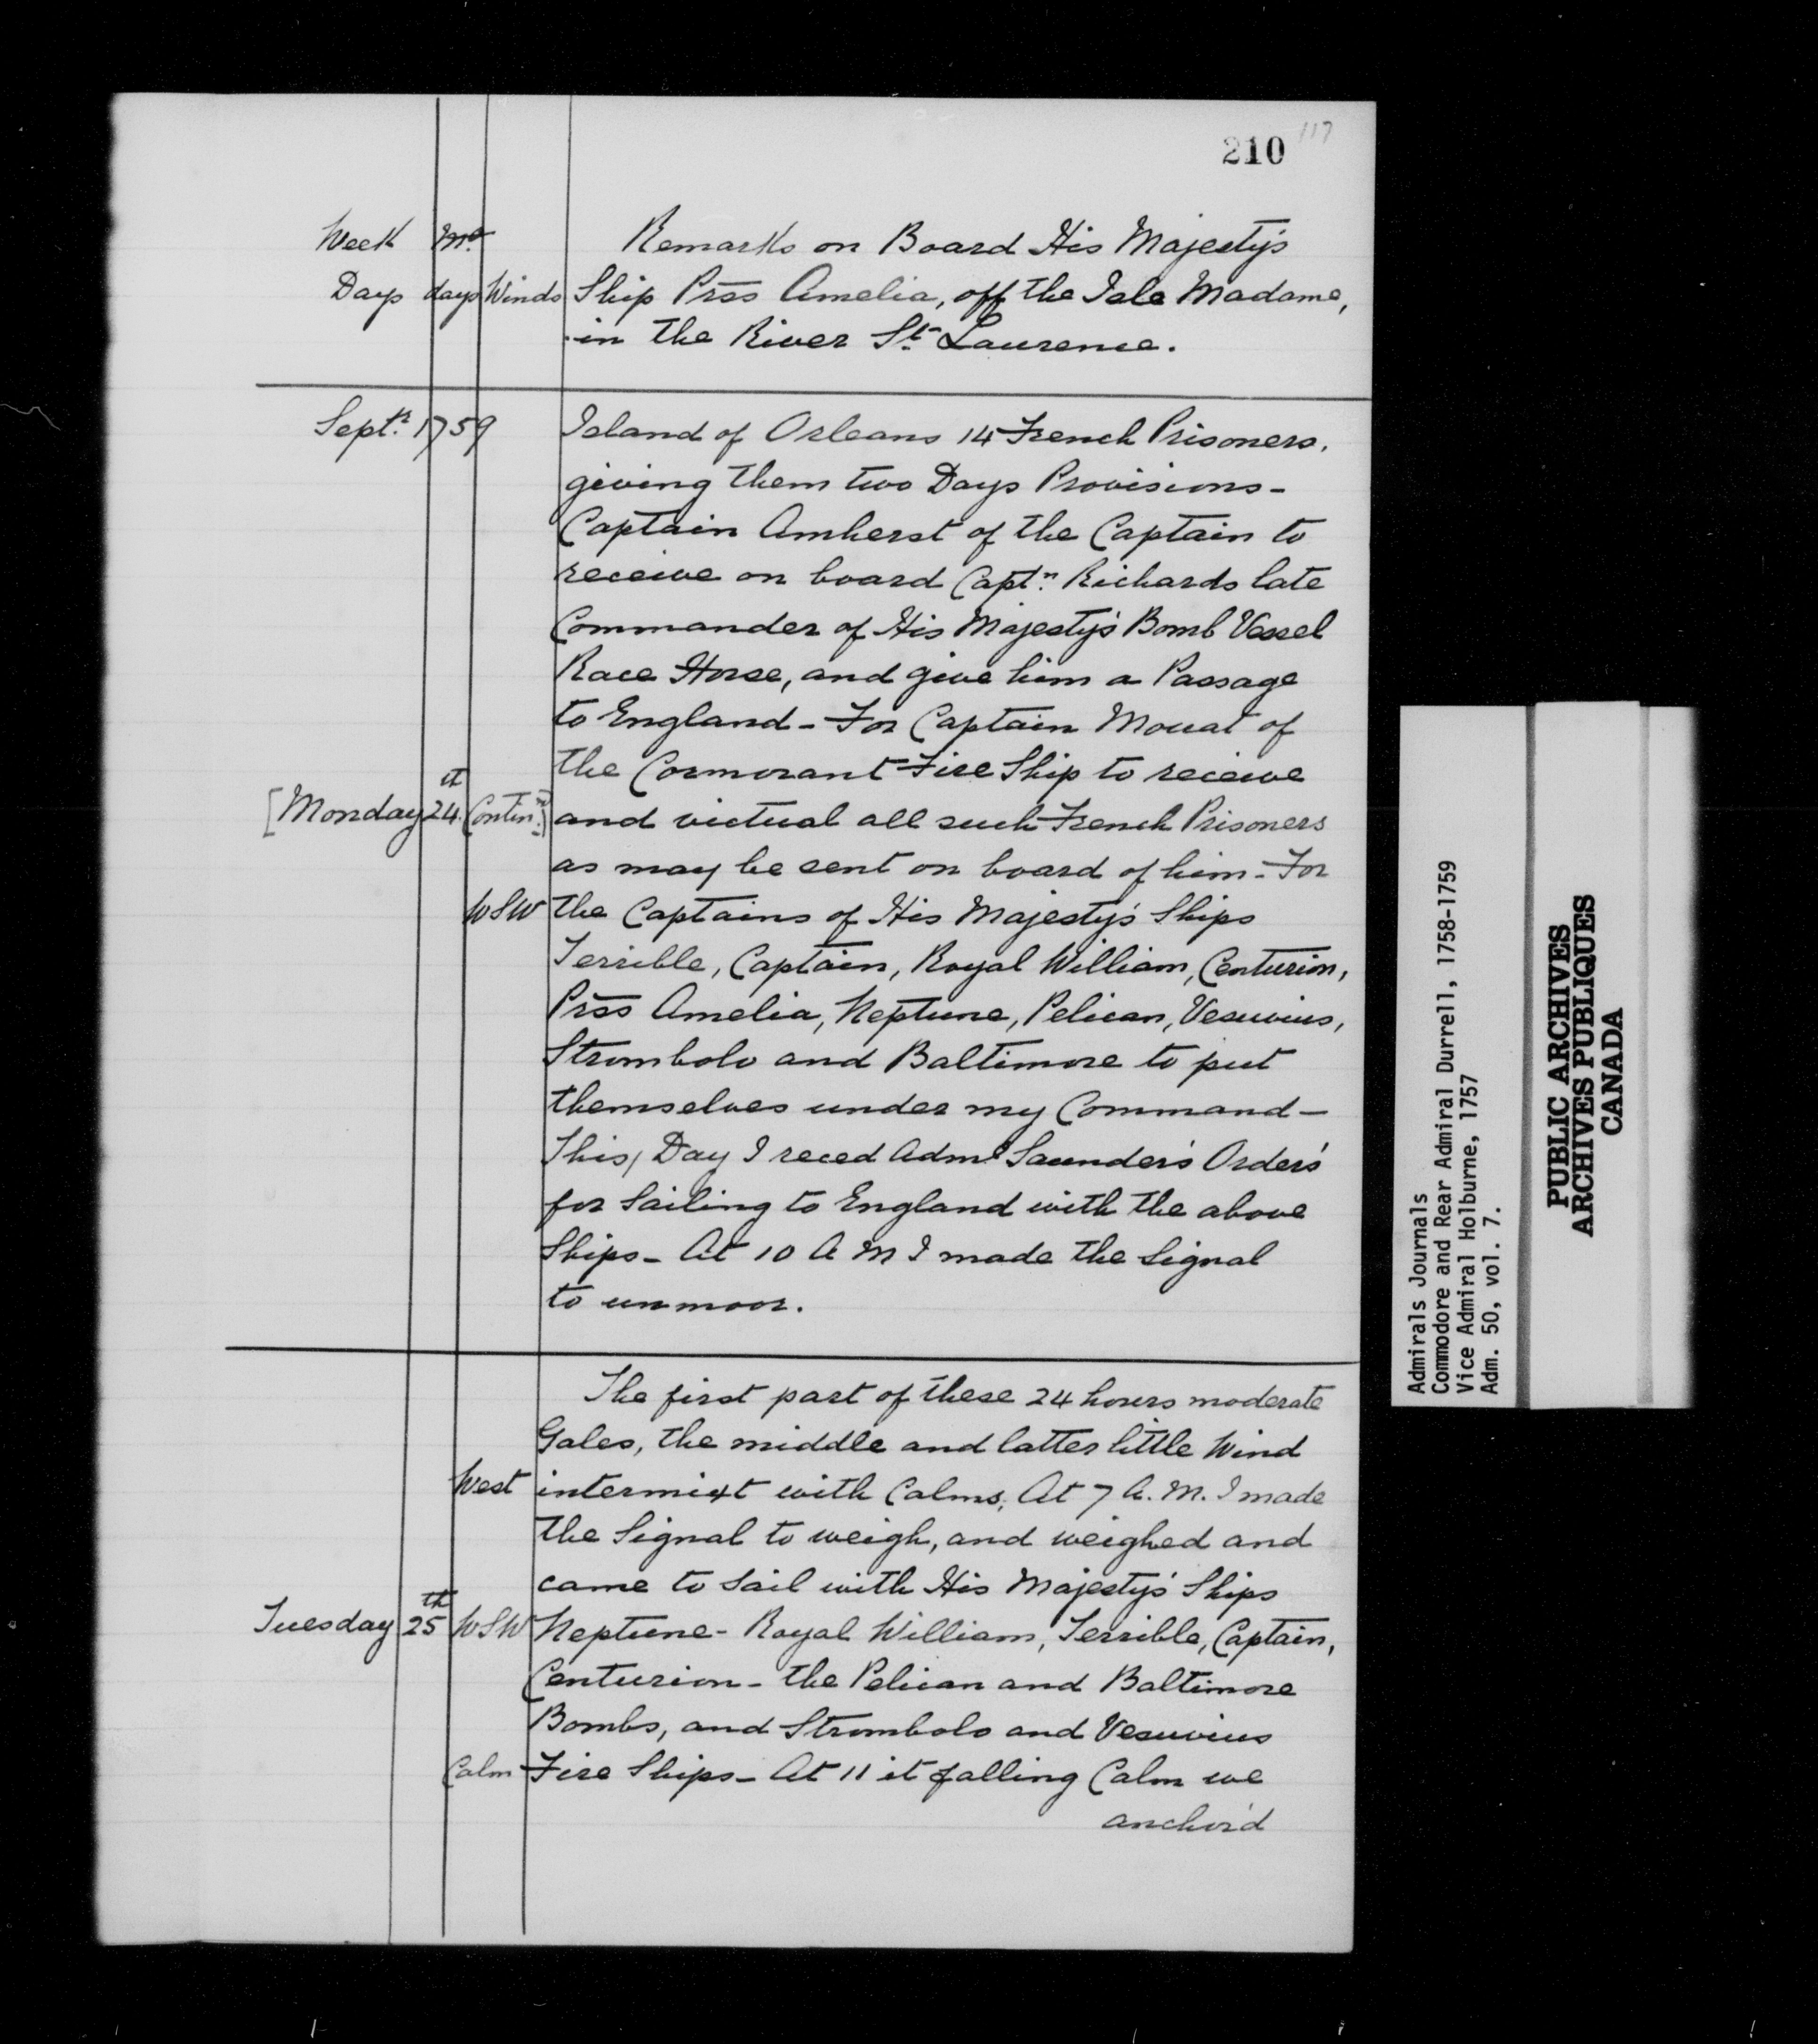 210
117
Week Mo. Remarks on Board His Majesty's
Days days Winds Ship Prss Amelia, off the Isle Madame,
in the River St. Laurence.
Septr. 1759 Island of Orleans 14 French Prisoners,
giving them two Days Provisions -
Captain Amherst of the Captain to
receive on board Captn. Richards late
Commander of His Majesty's Bomb Vessel
Race Horse, and give him a Passage
to England - For Captain Mouat of
the Cormorant Fire Ship to receive
[Monday 24th Contind.] and victual all such French Prisoners
as may be sent on board of him - For
WSW the Captains of His Majesty's Ships
Terrible, Captain, Royal William, Centurion,
Prss Amelia, Neptune, Pelican, Vesuvius,
Strombolo and Baltimore to put
themselves under my Command -
This, Day I reced Adml Saunder's Order's
for Sailing to England with the above
Ships - At 10 A M I made the Signal
to unmoor.
The first part of these 24 hours moderate
Gales, the middle and latter little Wind
West intermixt with Calms, At 7 A. M. I made
the Signal to weigh, and weighed and
came to Sail with His Majesty's Ships
Tuesday 25th WSW Neptune - Royal William, Terrible, Captain,
Centurion - the Pelican and Baltimore
Bombs, and Strombolo and Vesuvius
Calm Fire Ships - At 11 it falling Calm we
anchor'd
Admirals Journals
Commodore and Rear Admiral Durrell, 1758-1759
Vice Admiral Holburne, 1757
Adm. 50, vol. 7.
PUBLIC ARCHIVES
ARCHIVES PUBLIQUES
CANADA